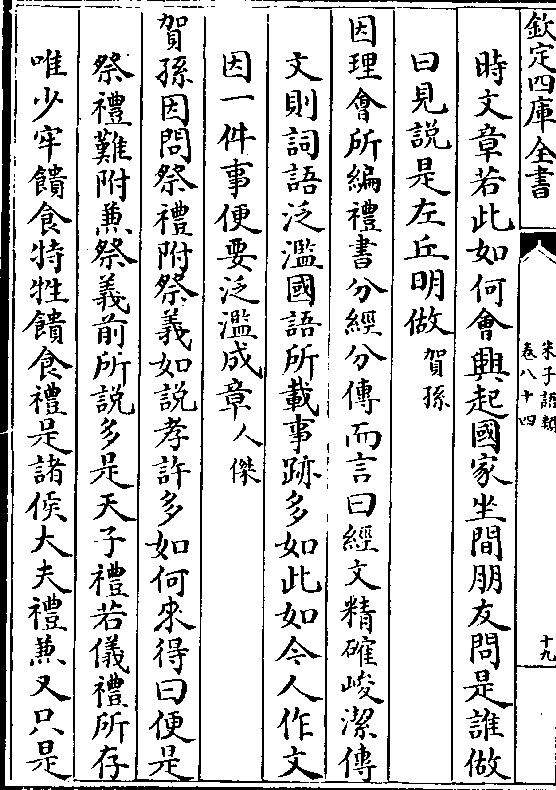 欽定四庫全書
朱子語類
卷八十四
十九
時文章若此如何會興起國家坐間朋友問是誰做
曰見說是左丘明做賀孫
因理會所編禮書分經分傳而言曰經文精確峻潔傳
文則詞語泛濫國語所載事跡多如此如今人作文
因一件事便要泛濫成章人傑
賀孫因問祭禮附祭義如說孝許多如何來得曰便是
祭禮難附兼祭義前所說多是天子禮若儀禮所存
唯少牢饋食特牲饋食禮是諸侯大夫禮兼又只是